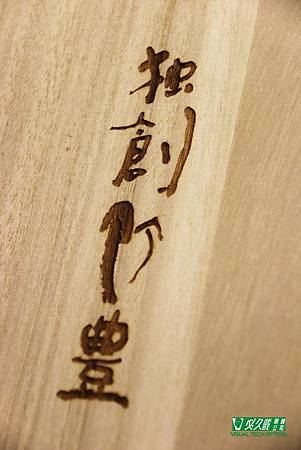 独創所豊
VISUAL TECH OPTICAL